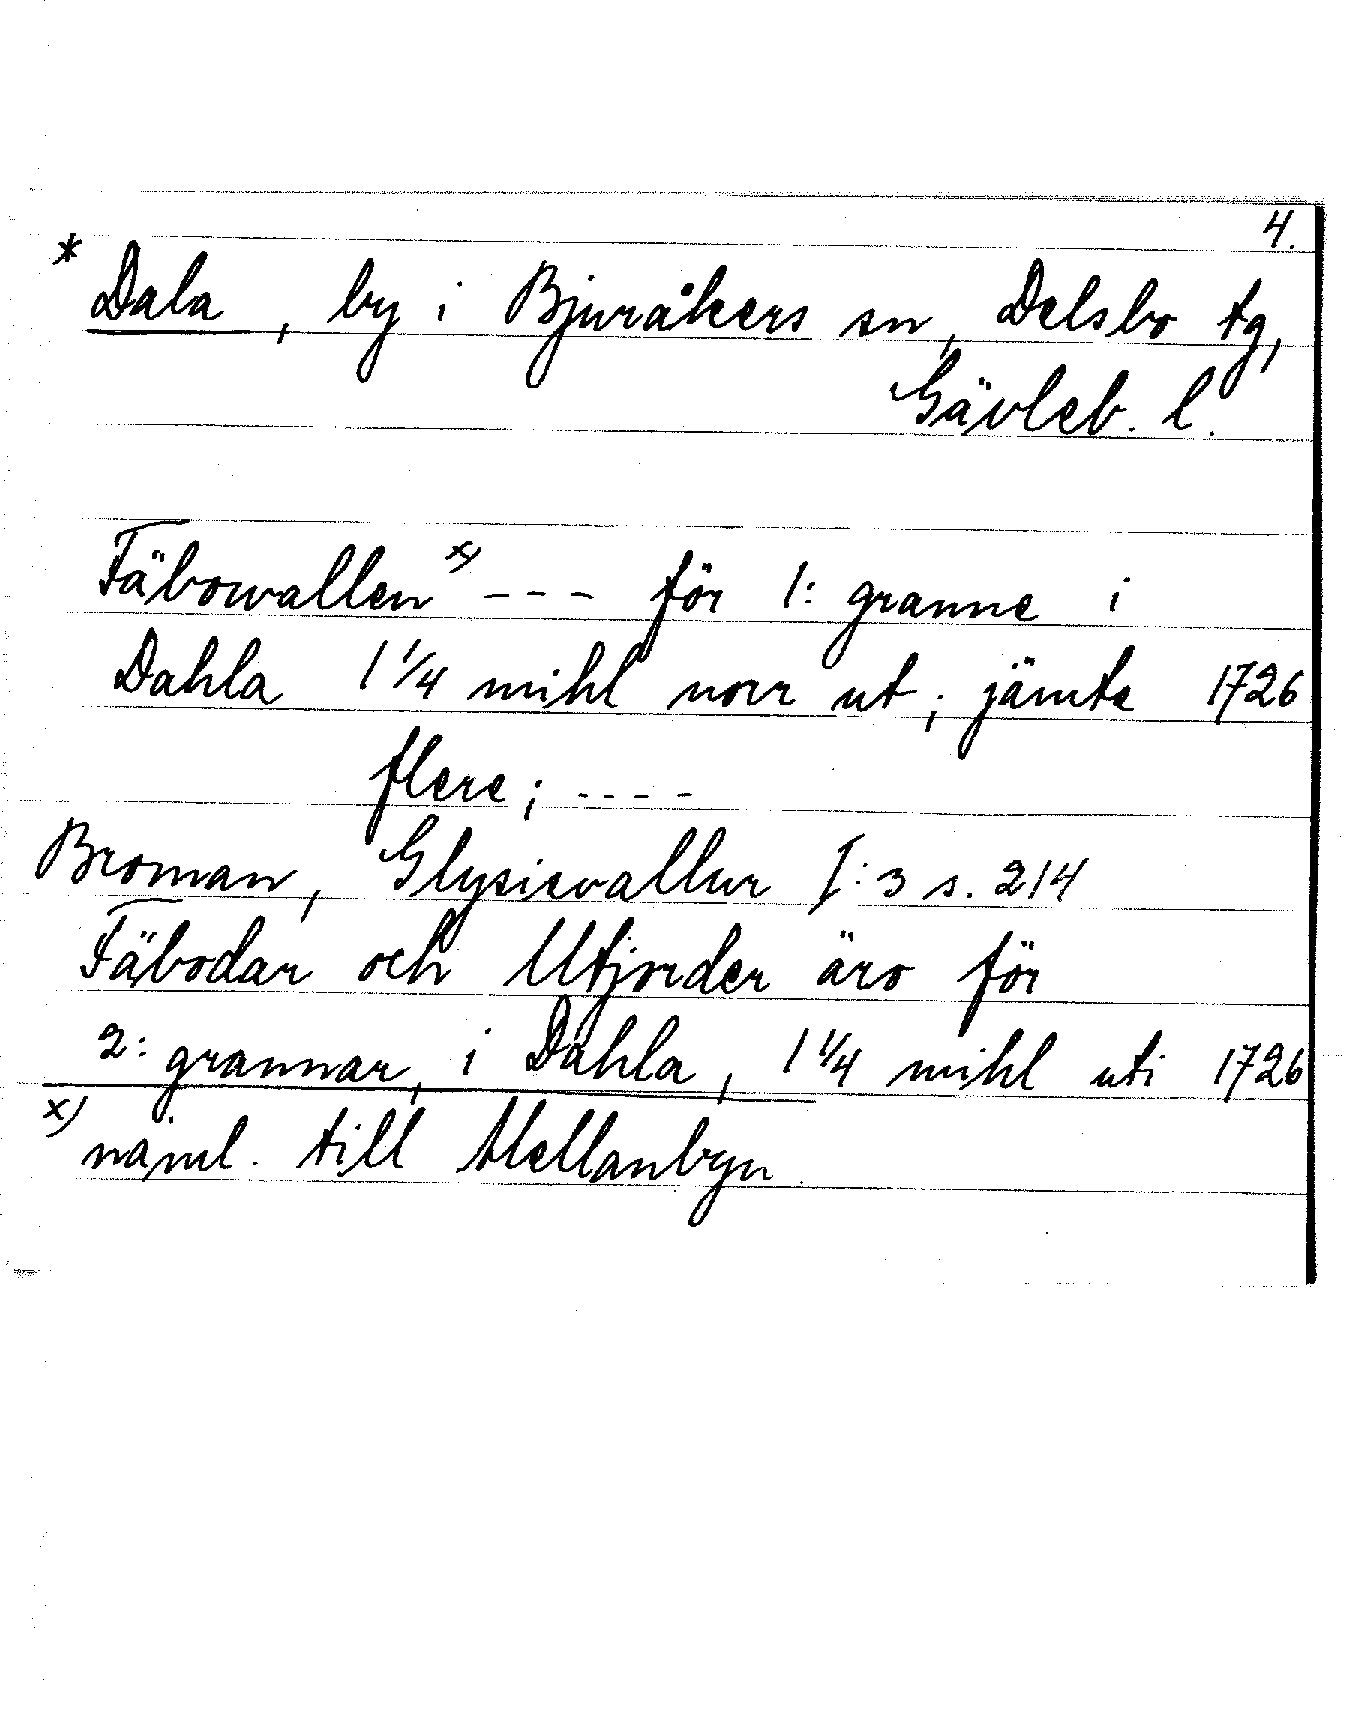 4.
* Dala, by i Bjuråkers sn, Delsbo tg,
Gävleb. l.
Fäbowallen x) --- för 1: granne i
Dahla 1 1/4 mihl norr ut; jämte 1726
flere; ----
Broman, Glysisvallur I:3 s. 214
Fäbodar och Utjorder äro för
2: grannar, i Dahla, 1 1/4 mihl uti 1726
x) näml. till Mellanbyn